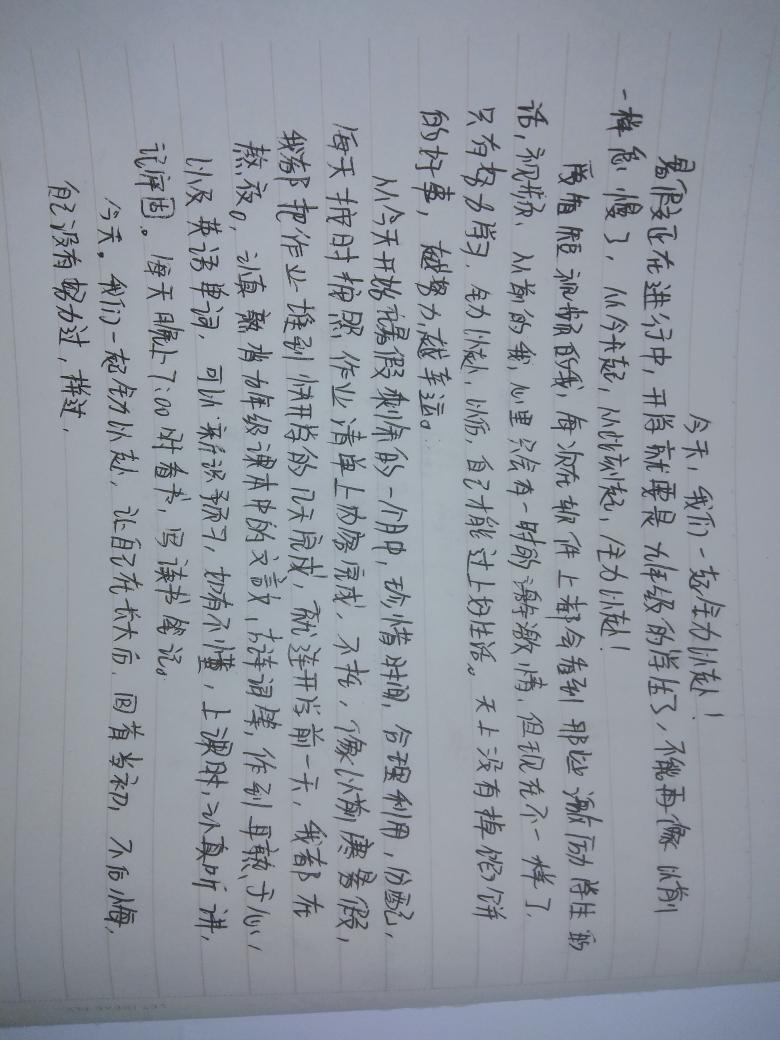 今天,我们一起全力以赴!
暑假正在进行中,开学就要是九年级的学生了,不能再像以前
一样怠慢了,从今天起,从此刻起,全力以赴!
爱看短视频的我,每次在软件上都会看到那些激励学生的
话,视频,从前的我,心里只会有一时的激情,但现在不一样了,
只有努力学习,全力以赴,以后,自己才能过上好生活。天上没有掉馅饼
的好事,越努力越幸运。
从今天开始,暑假剩余的一个月中,珍惜时间,合理利用,分配,
每天按时按照作业清单上内容完成,不拖,像以前寒暑假,
我都把作业堆到快开学的几天完成,就连开学前一天,我都在
熬夜。认真熟背九年级课本中的文言文,古诗词集,作到耳熟于心,
以及英语单词,可以,预习,如有不懂,上课时,认真听讲,
记牢固。每天晚上7:00时看书,写读书笔记。
今天。我们一起全力以赴,让自己在长大后,回首当初,不后悔,
自己没有努力过,拼过,